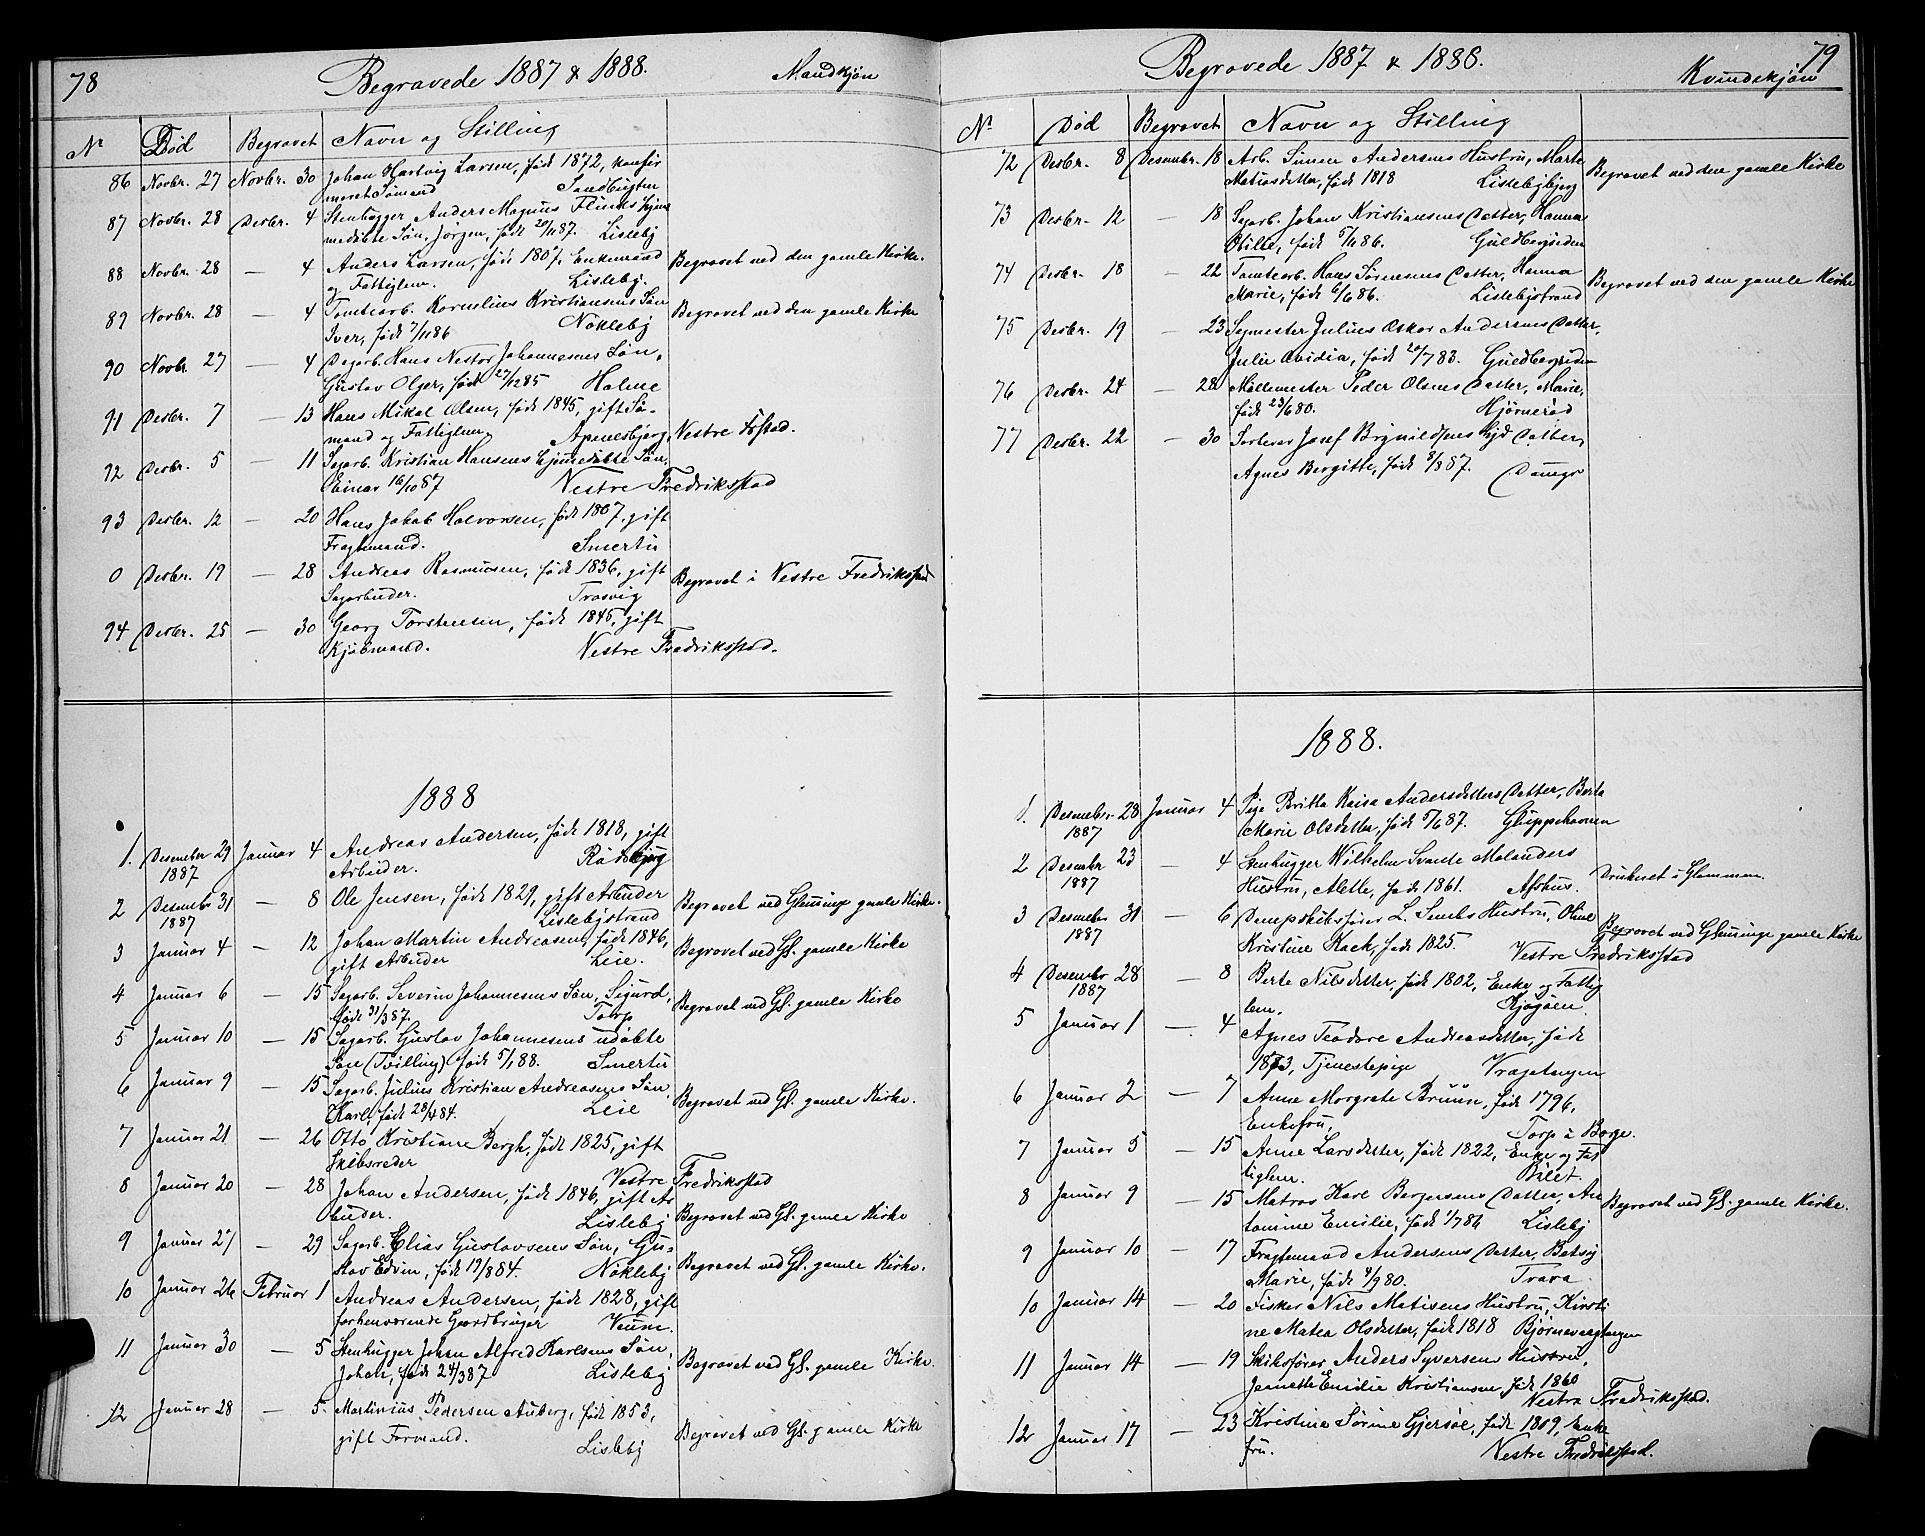 78 Begravede 1887 & 1888. Mandkjøn
No Død Begravet Navn og Stilling
86 Novbr. 27 Novbr. 30 Johan Hartvig Larsen, født 1872, konfir
meret Sømand Sandbugten
87 Novbr. 28 Desbr. 4 Stenhugger Anders Magnus Flinks hjem
medøbte Søn, Jørgen, født 20/11 87. Lisleby
88 Novbr. 28 — 4 Anders Larsen, født 1807, Enkemand Begravet ved den gamle Kirke.
og Fattiglem. Lisleby.
89 Novbr. 28 — 4 Tomtearb. Kornelius Kristiansens Søn Begravet ved den gamle Kirke
Iver, født 7/11 86 Nøkleby
90 Novbr. 27 — 4 Dagarb. Hans Nestor Johannesens Søn,
Gustav Olger, født 27/12 85 Holme
91 Desbr. 7 — 13 Hans Mikal Olsen, født 1845, gift Sø-
mand og Fattiglem, Apenesbjerg, Vestre Fstad.
92 Desbr. 5 — 11 Sagarb. Kristian Hansens hjemmedøbte Søn,
Einar 16/10 87 Vestre Fredriksstad
93 Desbr. 12 — 20 Hans Jakob Halvorsen, født 1807, gift
Fragtemand. Smertu
0 Desbr. 19 — 28 Andreas Rasmusen, født 1836, gift Begravet i Vestre Fredriksstad
Sagarbeider. Trosvig
94 Desbr. 25 — 30 Georg Torstensen, født 1845, gift
Kjøbmand. Vestre Fredriksstad.
1888
1. Desember 29 Januar 4 Andreas Andersen, født 1818, gift
1887 Arbeider. Rødsbjerg
2 Desembr 31 — 8 Ole Jensen, født 1829, gift Arbeider Begravet ved Glemminge gamle Kirke.
1887 Lislebystrand
3 Januar 4 — 12 Johan Martin Andreasen, født 1846, Begravet ved Gl. gamle Kirke
gift Arbeider Leie.
4 Januar 6 — 15 Sagarb. Severin Johannesens Søn, Sigurd, Begravet ved Gl. gamle Kirke
født 31/3 87. Torp
5 Januar 10 — 15 Sagarb. Gustav Johannesens udøbte
Søn (Tvilling) født 5/1 88. Smertu
6 Januar 9 — 15 Sagarb. Julius Kristian Andreasens Søn, Begravet ved Gl. gamle Kirke.
Karl, født 28/4 84. Leie
7 Januar 21 — 26 Otto Kristiane Bergh, født 1825, gift
Skibsreder Vestre Fredriksstad
8 Januar 20 — 28 Johan Andersen, født 1846, gift Ar
beider. Lisleby Begravet ved Gl. gamle Kirke
9 Januar 27 — 29 Sagarb. Elias Gustavsens Søn, Gu-
stav Edvin, født 19/8 84. Nøkleby Begravet ved Gl. gamle Kirke.
10 Januar 26 Februar 1 Andreas Andersen, født 1828, gift
forhenværende Gaardbruger Veum.
11 Januar 30 — 5 Stenhugger Johan Alfred Karlsens Søn,
Johan, født 24/3 87 Lisleby Begravet ved Gl. gamle Kirke.
12 Januar 28 — 5. Martinius Pedersen Auberg, født 1853,
gift Formand. Lisleby Begravet ved Gl. gamle Kirke
Begravede 1887 & 1888. Kvindekjøn 79
No Død Begravet Navn og Stilling
72 Desbr. 8 Desembr. 18 Arb. Simen Andersens Hustru, Marte Begravet ved den gamle Kirke
Matiasdatter, født 1818 Lislebybjerg
73 Desbr. 12 — 18 Sagarb. Johan Kristiansens Datter, Hanna
Otilie, født 5/11 86. Guldbergsiden
74 Desbr. 18 — 22 Tomtearb. Hans Sørensens Datter, Hanna Begravet ved den gamle Kirke
Marie, født 6/6 86. Lislebystrand
75 Desbr. 19 — 23 Sagmester Julius Oskar Andersens Datter,
Julie Ovidia, født 20/7 83. Guldbergsiden
76 Desbr. 24 — 28 Møllemester Peder Olsens Datter, Marie,
født 23/6 80. Hjørnerød
77 Desbr. 22 — 30 Sorterer Josef Brynildsens hjd Datter,
Agnes Bergitte, født 8/8 87.
1888.
1. Desember 28 Januar 4 Pige Britta Kaisa Andersdatters Datter, Berta
1887 Marie Olsdatter, født 5/6 87. Gluppehavnen
2 Desembr 23 — 4 Stenhugger Wilhelm Svante Molanders
1887 Hustru, Alette, født 1861. Druknet i Glommen.
3 Desembr 31 — 6 Dampskibsfører L. Smiths Hustru, Oline Begravet ved Glemminge gamle Kirke
1887 Kristine Kack, født 1825. Vestre Fredriksstad
4 Desember 28 — 8 Berte Nilsdatter, født 1802, Enke og Fattig
1887 lem. Kjøgøen.
5 Januar 1 — 4 Agnes Teodore Andreasdatter, født
1873, Tjenestepige Vragetangen
6 Januar 2 — 7 Anne Margrete Bruun, født 1796,
Enkefru, Torp i Borge.
7 Januar 5 — 15 Anne Larsdatter, født 1822, Enke og Fat
tiglem. Bilet.
8 Januar 9 — 15 Matros Karl Bergersens Datter, An Begravet ved Gl. gamle Kirke.
tomine Emilie, født 1/7 86 Lisleby
9 Januar 10 — 17 Fragtemand Andersens Datter, Betsy
Marie, født 4/9 80. Trara.
10 Januar 14 — 20 Fisker Nils Matisens Hustru, Kirsti
ne Matea Olsdatter, født 1818 Bjørnevaagtangen
11 Januar 14 — 19 Skibsfører Anders Syversens Hustru,
Jeanette Emilie Kristiansen født 1860
Vestre Fredriksstad.
12 Januar 17 — 23 Kristine Sørine Gjersøe, født 1809, Enke
fru. Vestre Fredriksstad.